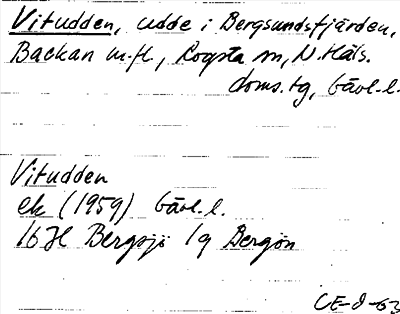 Vitudden, udde i Bergsundsfjärden,
Backan m.fl, Rogsta sn, N. Häls.
doms.tg, Gävl.l.
Vitudden
ek (1959) Gävl.l.
16H Bergsjö 1g Bergön
CE-J-63